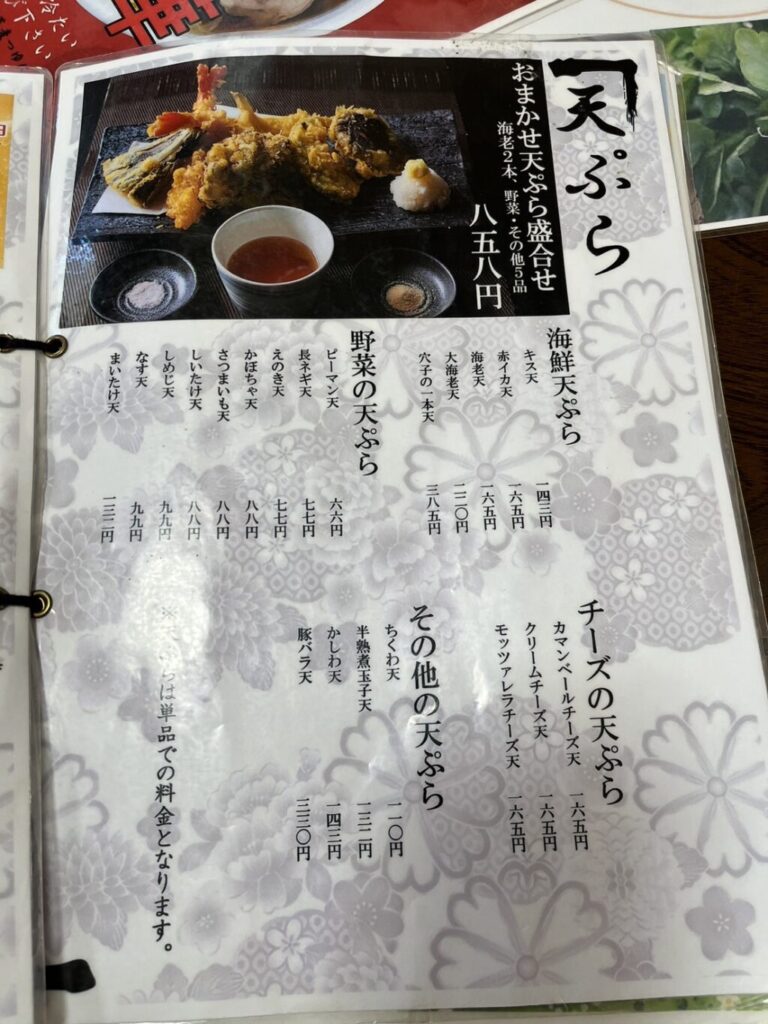 天ぷら
おまかせ天ぷら盛合せ
海老2本、野菜・その他5品
八五八円
海鮮天ぷら
キス天 一四三円
赤イカ天 一六五円
海老天 一六五円
大海老天 二二〇円
穴子の一本天 三八五円
野菜の天ぷら
ピーマン天 六六円
長ネギ天 七七円
えのき天 七七円
かぼちゃ天 八八円
さつまいも天 八八円
しいたけ天 八八円
しめじ天 九九円
なす天 九九円
まいたけ天 一三二円
チーズの天ぷら
カマンベールチーズ天 一六五円
クリームチーズ天 一六五円
モッツァレラチーズ天 一六五円
その他の天ぷら
ちくわ天 一一〇円
半熟煮玉子天 一三二円
かしわ天 一四三円
豚バラ天 三三〇円
※天ぷらは単品での料金となります。